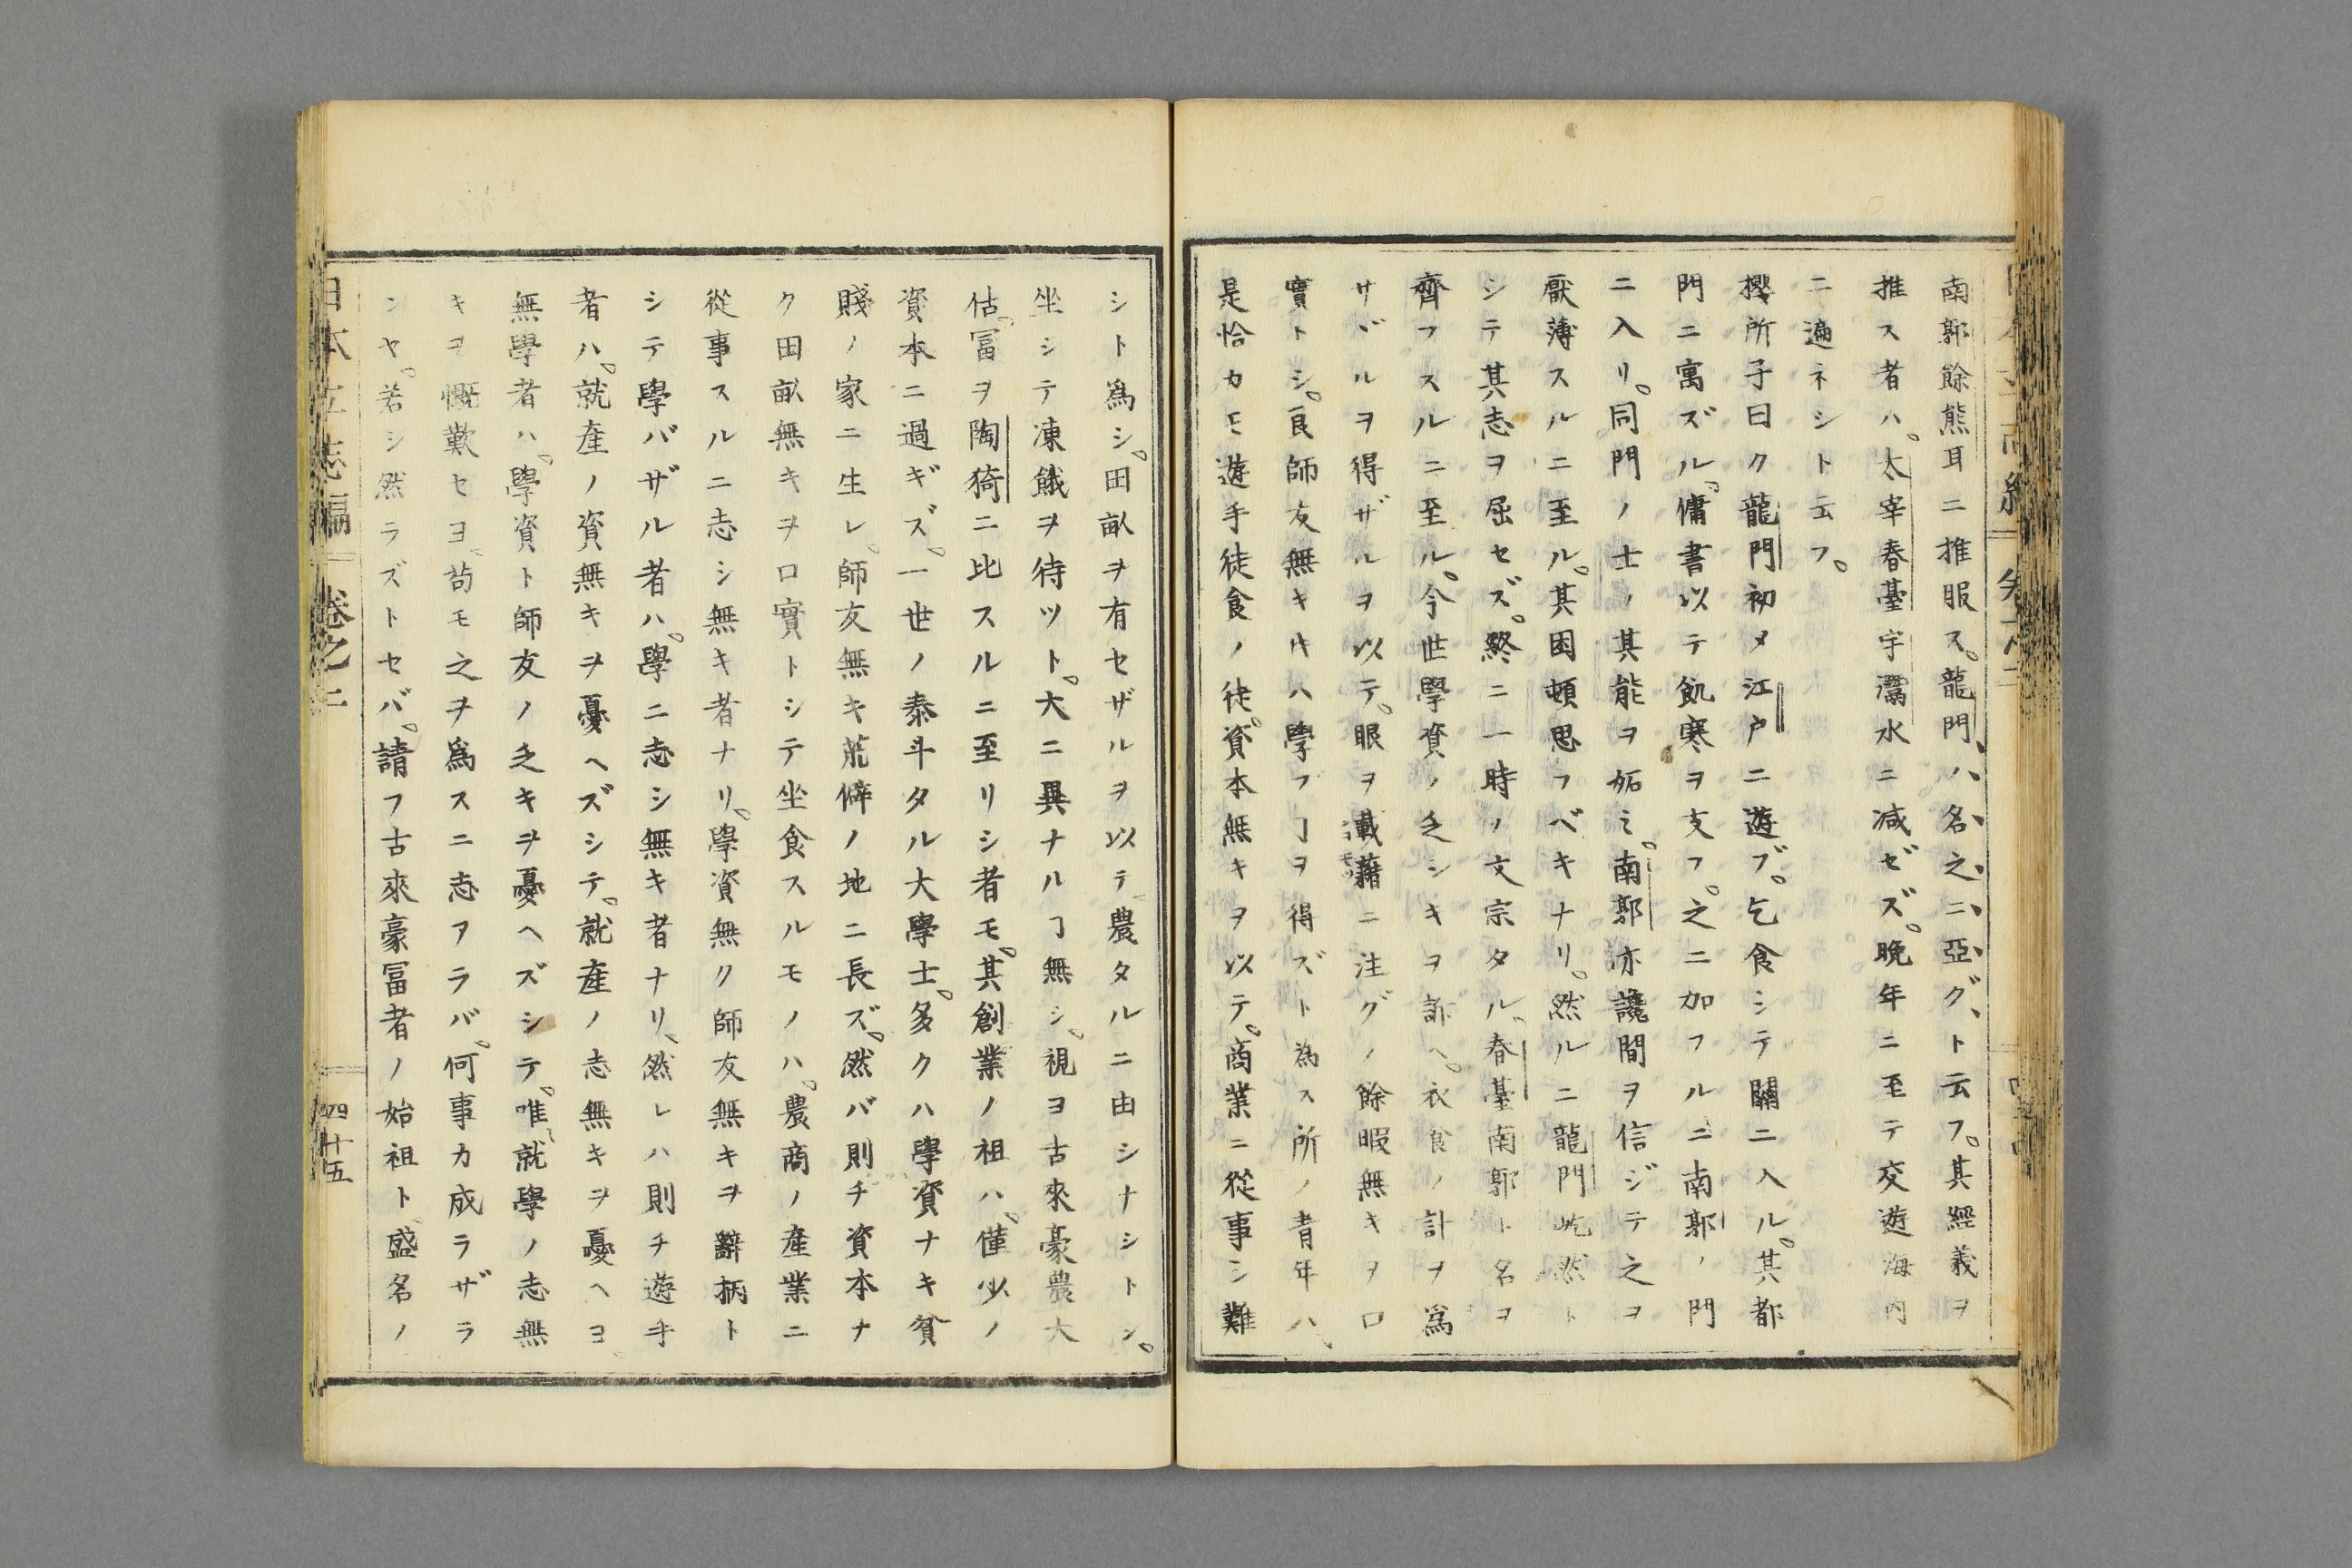 南郭餘熊耳ニ推服ス。龍門ハ名之ニ亞グト云フ。其經義ヲ
推ス者ハ。太宰春臺宇灊水ニ減ゼズ。晩年ニ至テ交遊海内
ニ遍ネシト云フ。
櫻所子曰ク龍門初メ江戸ニ遊ブ。乞食シテ關ニ入ル。其都
門ニ寓ズル。傭書以テ飢寒ヲ支フ。之ニ加フルニ南郭ノ門
ニ入リ。同門ノ士ノ其能ヲ妬ミ。南郭亦讒間ヲ信ジテ之ヲ
厭薄スルニ至ル。其困頓思フベキナリ。然ルニ龍門屹然ト
シテ其志ヲ屈セズ。終ニ一時ノ文宗タル。春臺南郭ト名ヲ
齊フスルニ至ル。今世學資ノ乏シキヲ訴ヘ。衣食ノ計ヲ爲
サヾルヲ得ザルヲ以テ。眼ヲ載籍ニ注グノ餘暇無キヲ口
實トシ。良師友無キハ學フヿヲ得ズト為ス所ノ青年ハ、
是恰カモ遊手徒食ノ徒。資本無キヲ以テ。商業ニ從事シ難
シト爲シ。田畝ヲ有セザルヲ以テ農タルニ由シナシトシ。
坐シテ凍餓ヲ待ツト。大ニ異ナルヿ無シ。視ヨ古來豪農大
估。冨ヲ陶猗ニ比スルニ至リシ者モ。其創業ノ祖ハ。僅少ノ
資本ニ過ギズ。一世ノ泰斗タル大學士。多クハ學資ナキ貧
賤ノ家ニ生レ。師友無キ荒僻ノ地ニ長ズ。然バ則チ資本ナ
ク田畝無キヲ口實トシテ坐食スルモノハ。農商ノ産業ニ
從事スルニ志シ無キ者ナリ。學資無ク師友無キヲ辭柄ト
シテ學バザル者ハ。學ニ志シ無キ者ナリ、然レハ則チ遊手
者ハ。就産ノ資無キヲ憂ヘズシテ。就産ノ志無キヲ憂ヘヨ、
無學者ハ。學資ト師友ノ乏キヲ憂ヘズシテ。唯就學ノ志無
キヲ慨歎セヨ。苟モ之ヲ爲スニ志アラバ。何事カ成ラザラ
ンヤ。若シ然ラズトセバ。請フ古來豪冨者ノ始祖ト。盛名ノ
日本立志編 卷之二 四十五